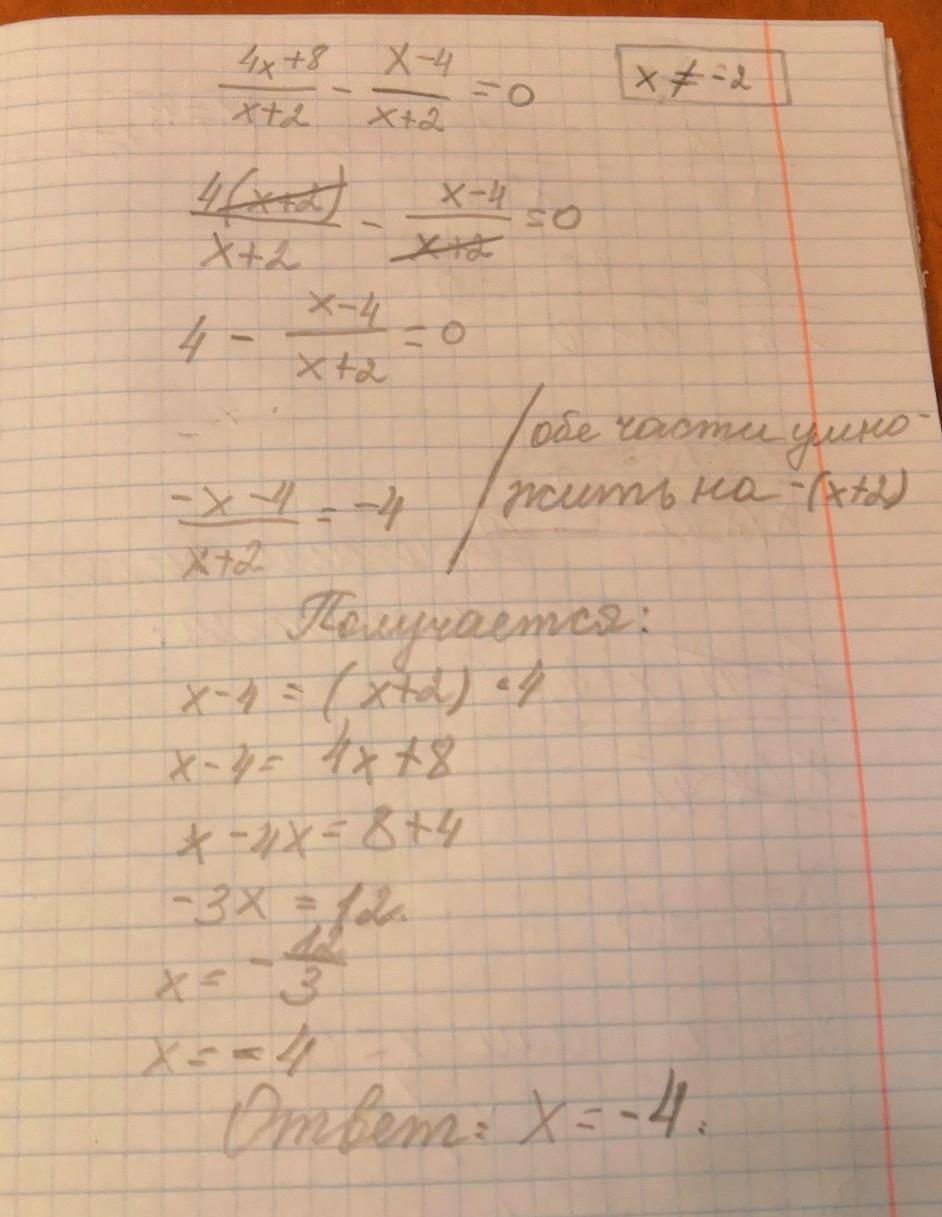 4x+8/x+2 - x-4/x+2 = 0 x ≠ -2
4(x+2)/x+2 - x-4/x+2 = 0
4 - x-4/x+2 = 0
-x-4/x+2 = -4 / обе части умно-
жить на -(x+2)
Получается:
x-4 = (x+2) · 4
x-4 = 4x+8
x-4x = 8+4
-3x = 12.
x = - 12/3
x = - 4
Ответ: x = -4.